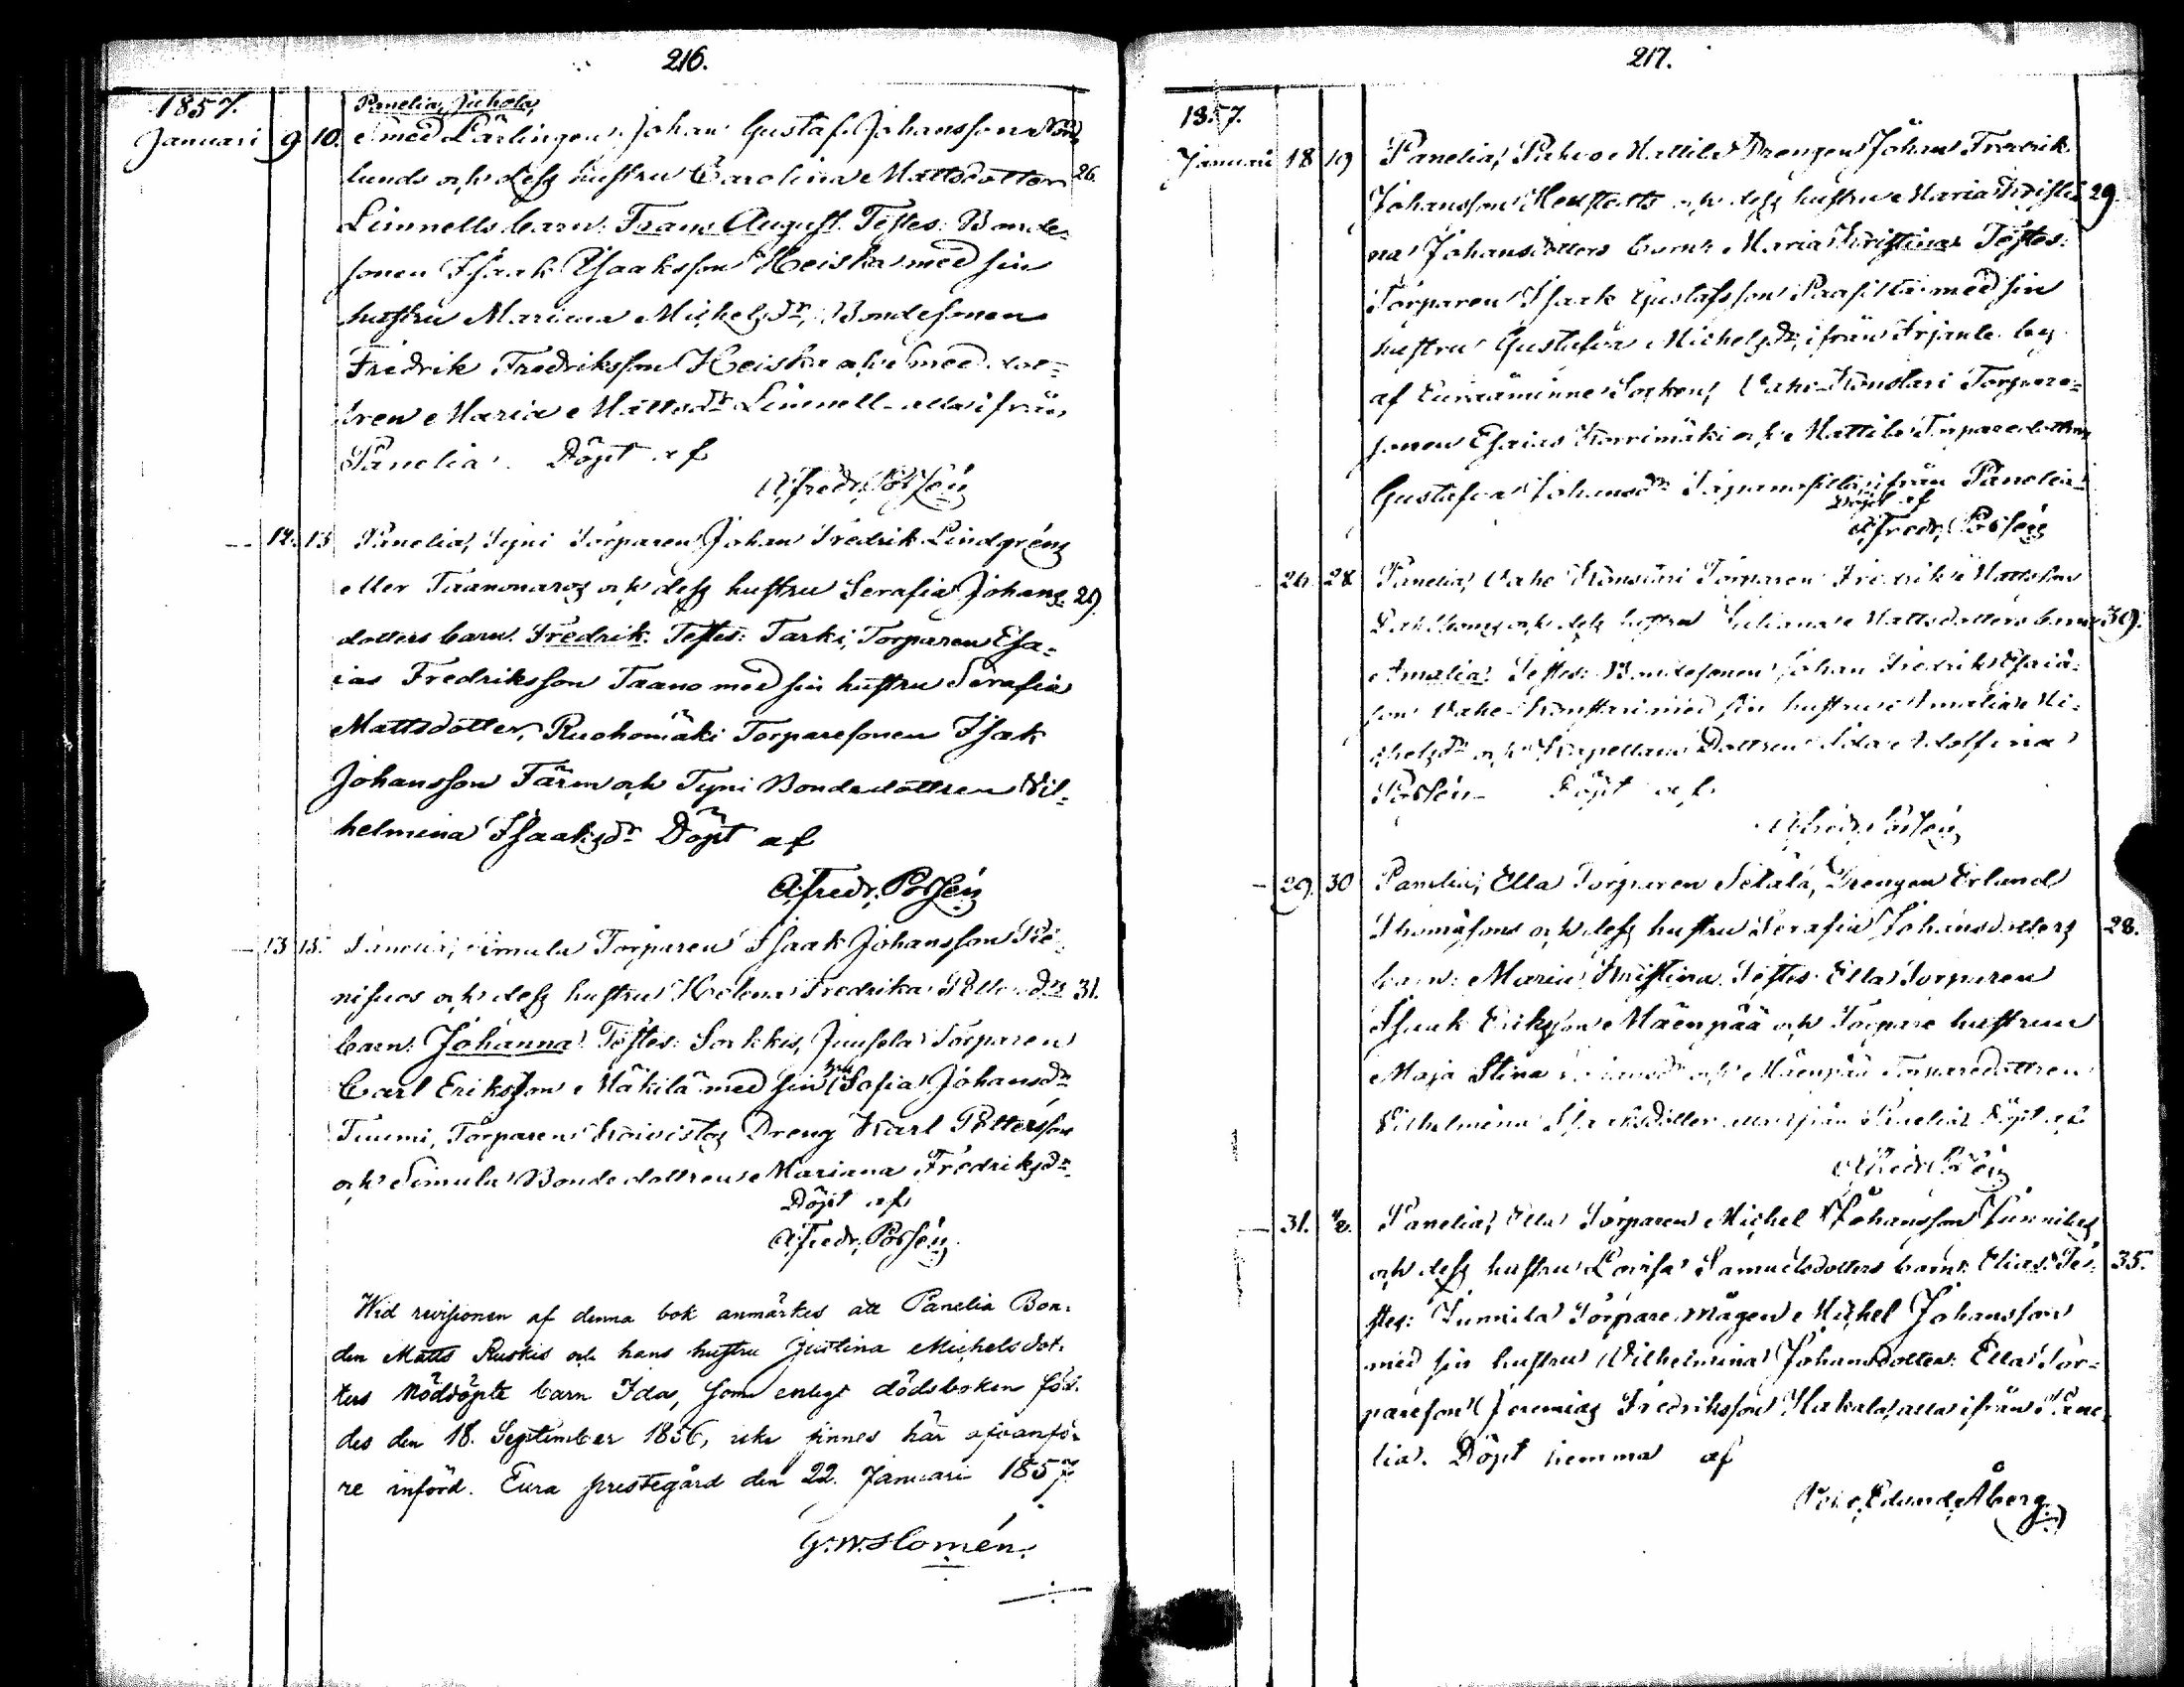 216.
1857.
Panelia, Juhola,
Januari 9 10. Smed Lärlingen Johan Gustaf Johansson Nord
lunds och dess hustru Carolina Mattsdotter 26.
Linnells barn: Frans August. Testes: Bonde
sonen Isaak Isaaksson Heiska med sin
hustru Mariana Michelsdr, Bondesonen
Fredrik Fredriksson Heiska och med dot=
tren Maria Mattsdr Linnell alla ifrån
Panelia. Döpt af
A. Fredr. Polsén
12. 13 Panelia, Tyni Torparen Johan Fredrik Lindgréns
eller Taanonaros och dess hustru Serafia Johans= 29.
dotters barn: Fredrik. Testes: Tarki, Torparen Esa=
ias Fredriksson Taano med sin hustru Serafia
Mattsdotter, Ruohomäki Torparesonen Isak
Johansson Färm och Tyni Bondedottren Vil=
helmina Isaaksdr Döpt af
A. Fredr. Polsén
13 15. Panelia, Simula Torparen Isaak Johansson
och dess hustru Helena Fredrika 31.
barn: Johanna. Testes: Sorkkis, Juusela Torparen
Carl Eriksson Mäkilä med sin hru Sofia Johansdr
Tuumi, Torparen Koivistos Dreng Karl Pettersson
och Simula Bondedottren Mariana Fredriksdr
Döpt af
A. Fredr. Polsén
Wid revisionen af denna bok anmärkes att Panelia Bon-
den Matts Ruskis och hans hustru Justina Michelsdot-
ters Nöddöpte barn Ida, som enligt dödsboken föd-
des den 18. September 1856, icke finnes här ofvanfö-
re införd. Eura prestegård den 22. Januari 1857.
G. W. Homén.
217.
1857.
Januari 18 19 Panelia, Mattila Drengen Johan Fredrik
Johansson och dess hustru Maria Kristi 29.
na Johansdotters barn: Maria Kristina. Testes:
Torparen Isaak Gustafsson med sin
hustru Gustafva Michelsdr, ifrån Irjanle by
af Euraåminne Socken, Vahe-Konstari Torpare=
sonen Esaias Korrimäki och Mattila Torparedottren
Gustafva Johansdr ifrån Panelia
Döpt af
A. Fredr. Polsén
26. 28 Panelia, Vahe Konstari Torparen Fredrik Mattsson
och dess hustru Juliana Mattsdotters barn 39.
Amalia. Testes: Bondesonen Johan Fredrik Esaias=
son Vahe-Konstari med sin hustru Amalia Mi=
chelsdr och Kapellans Dottren Ida Adolfina
Polsén. Döpt af
A. Fredr. Polsén
29. 30 Panelia, Ella Torparen Setälä, Drengen Erland
Thomassons och dess hustru Serafia Johansdotters 28.
barn: Maria Kristina. Testes: Ella Torparen
Isaak Eriksson Mäenpää och Torpare hustrun
Maja Stina och Mäenpää Torparedottren
Vilhelmina Isaaksdotter alla ifrån Panelia Döpt af
A. Fredr. Polsén
31. 1/2. Panelia, Ella Torparen Michel Johansson Junnilas
och dess hustru Lovisa Samuelsdotters barn: Elias. Te= 35.
stes: Junnila Torpare Mågen Michel Johansson
med sin hustru Vilhelmina Johansdotter, Ella Tor=
pareson Jeremias Fredriksson Hakala, alla ifrån Pane
lia. Döpt hemma af
Edvard Åberg